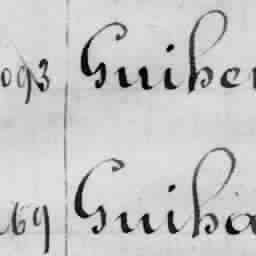 093 Guihe
69 Guiha